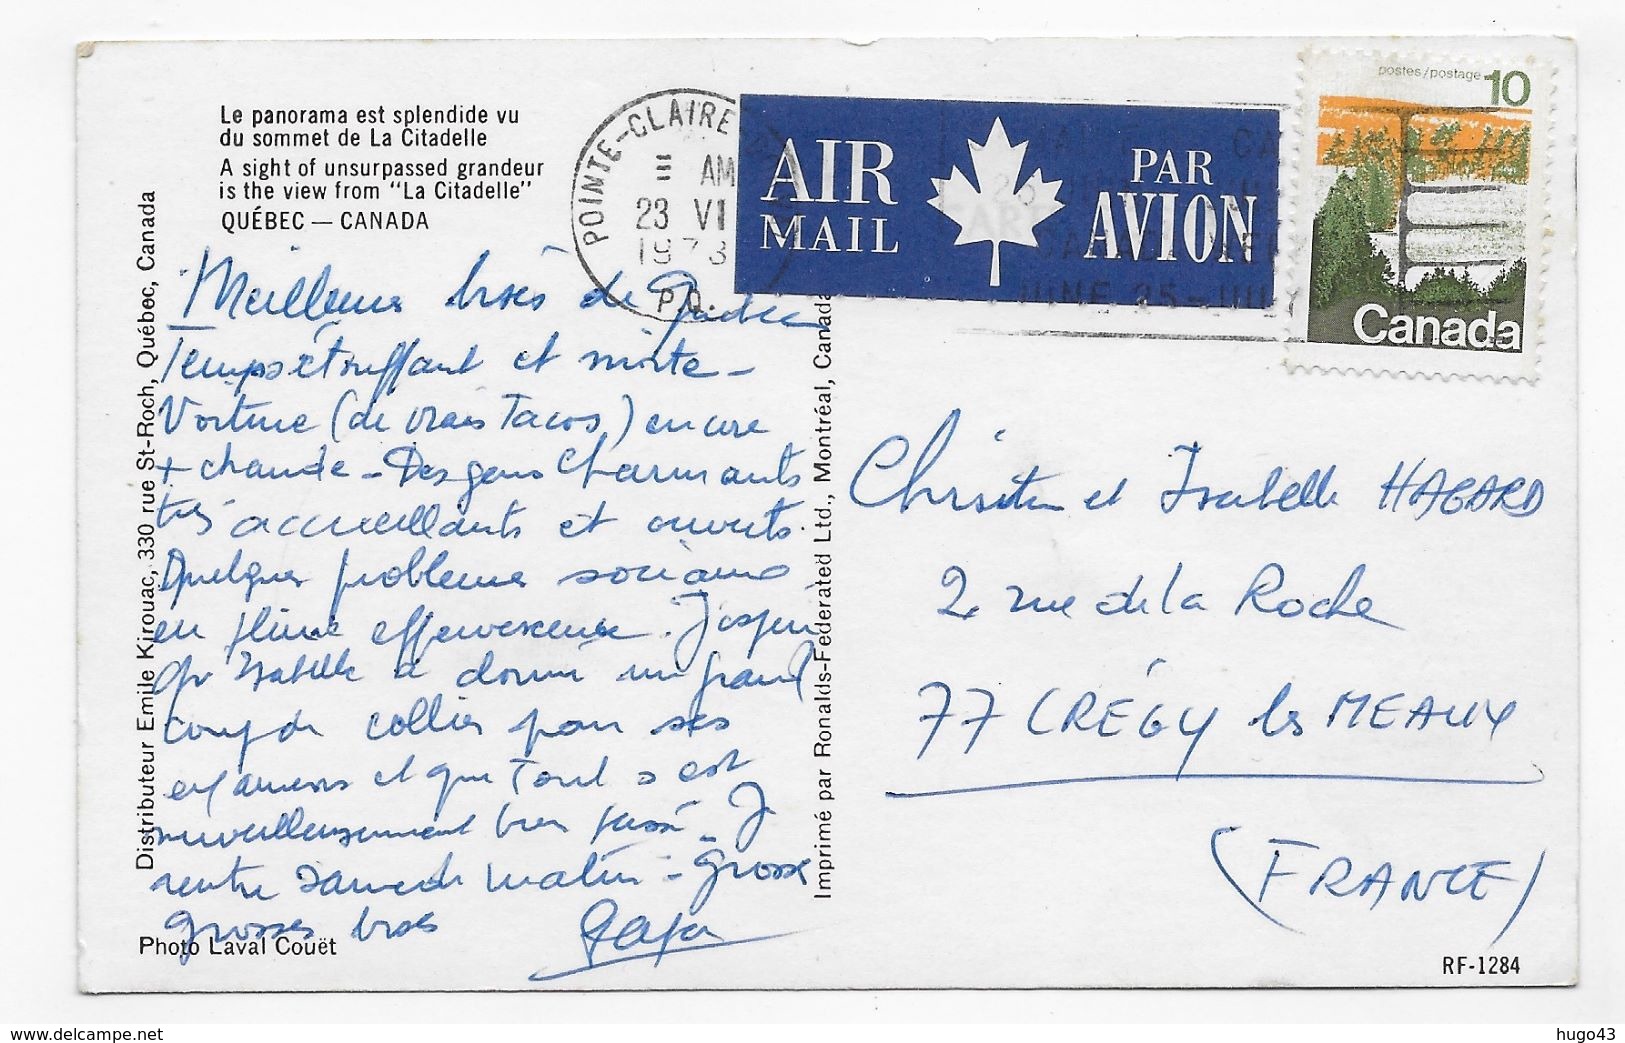 Le panorama est splendide vu
du sommet de La Citadelle
A sight of unsurpassed grandeur
is the view from "La Citadelle"
QUÉBEC — CANADA
POINTE-CLAIRE
AM
23 VI
1973
P.Q.
AIR MAIL
PAR AVION
JUNE 25 - JULY
postes/postage 10
Canada
Meilleurs bises de Québec
Temps étouffant et moite -
Voiture (de vrais Tacos) encore
+ chaude - Des gens charmants
très accueillants et ouverts.
Quelques problèmes sociaux
en pleine effervescence. J'espère
qu'Isabelle a donné un grand
coup de collier pour ses
examens et que tout s'est
merveilleusement bien passé - Je
rentre samedi matin - Grosse
grosses bises
Christian et Isabelle HAGARD
2 rue de la Roche
77 CRÉGY les MEAUX
(FRANCE)
Distributeur Emile Kirouac, 330 rue St-Roch, Québec, Canada
Imprimé par Ronalds-Federated Ltd., Montréal, Canada
Photo Laval Couët
RF-1284
www.delcampe.net
hugo43